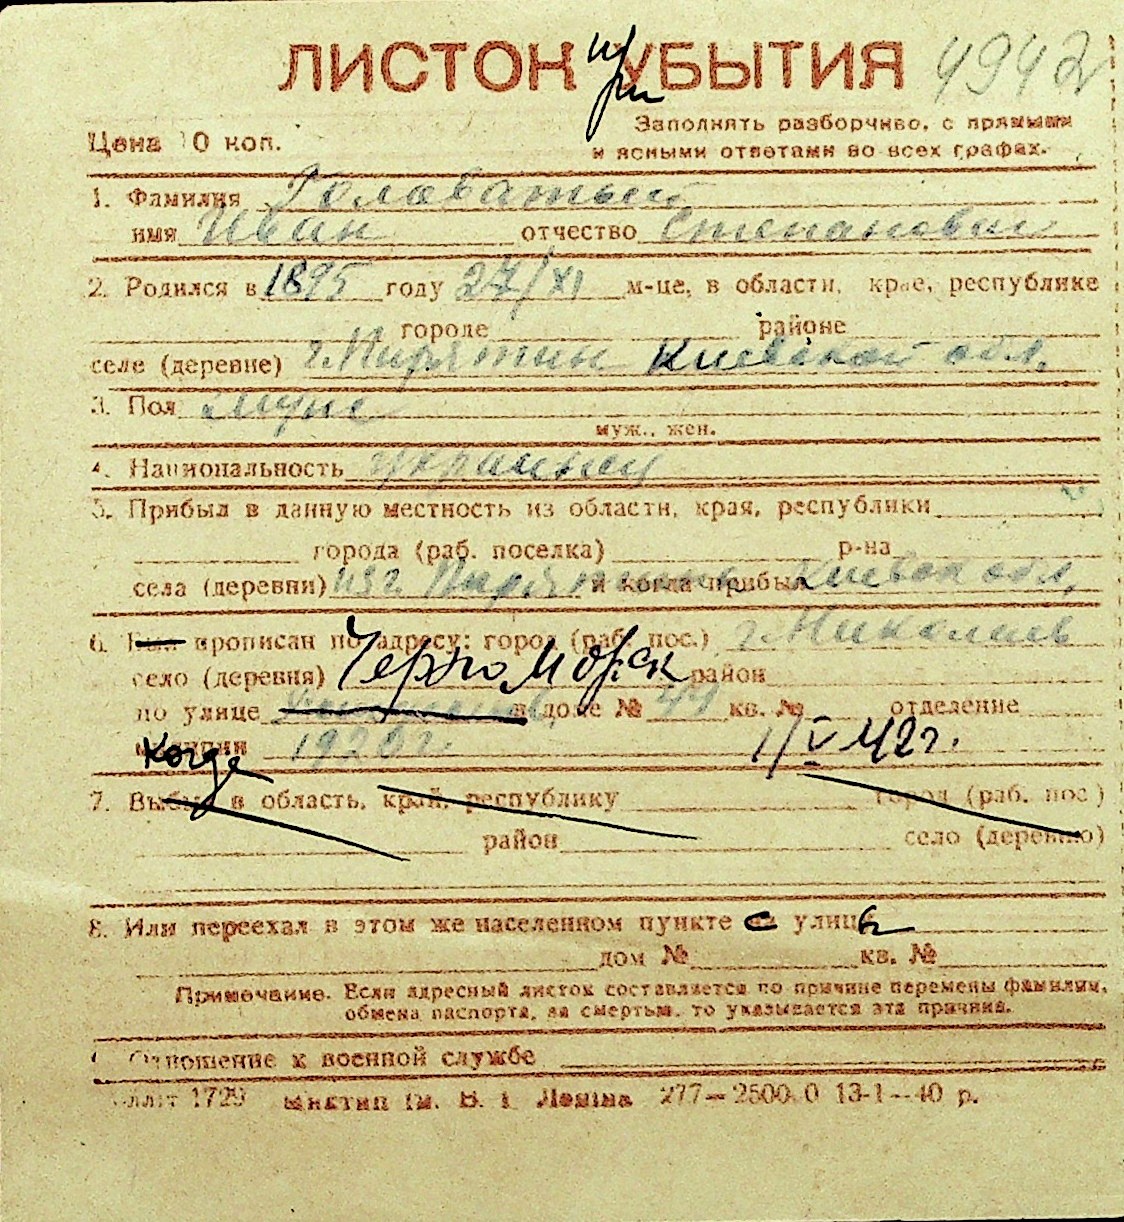 ЛИСТОК при УБЫТИЯ 4942
Цена 10 коп.
Заполнять разборчиво, с прямыми
и ясными ответами во всех графах.
1. Фамилия Головатый
имя Иван отчество Степанович
2. Родился в 1895 году 27/XI м-це, в области, крае, республике
городе районе
селе (деревне) г. Пирятин Киевской обл.
3. Пол муж
муж., жен.
4. Национальность украинец
5. Прибыл в данную местность из области, края, республики
города (раб. поселка) р-на
села (деревни) из г. Пирятин и когда прибыл Киевск обл.
6. Был прописан по адресу: город (раб. пос.) г. Николаев
село (деревня) Черноморск район
по улице в доме № 44 кв. № отделение
милиции Когда 1920 г. 1/V 42 г.
7. Выбыл в область, край, республику город (раб. пос.)
район село (деревню)
8. Или переехал в этом же населенном пункте с улицы
дом № кв. №
Примечание. Если адресный листок составляется по причине перемены фамилии,
обмена паспорта, за смертью, то указывается эта причина.
Отношение к военной службе
1729 ім. В. І. Леніна 277—2500.0 13-1—40 р.